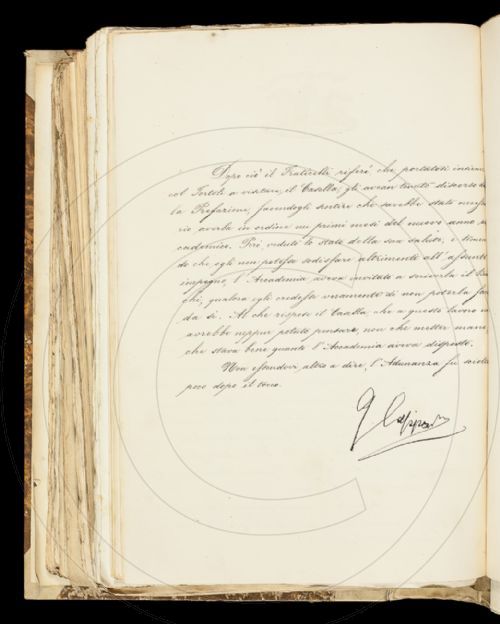 Dopo ciò il Fraticelli riferì che portatosi insieme
col Tortoli a visitare il Casella, gli avean tenuto discorso del
la Prefazione, facendogli sentire che sarebbe stato necessa
rio averla in ordine nei primi mesi del nuovo anno ac
cademico. Poi, veduto lo stato della sua salute, e
che egli non potesse sodisfare altrimenti all'assunto
impegno, l'Accademia aveva invitato a scriverla il
ghi, qualora egli credesse veramente di non poterla fare
da sé. Al che rispose il Casella, che a questo lavoro
avrebbe neppur potuto pensare, non che metter mano,
che stava bene quanto l'Accademia aveva disposto.
Non essendovi altro a dire, l'Adunanza fu sciolta
poco dopo il tocco.
G Capponi